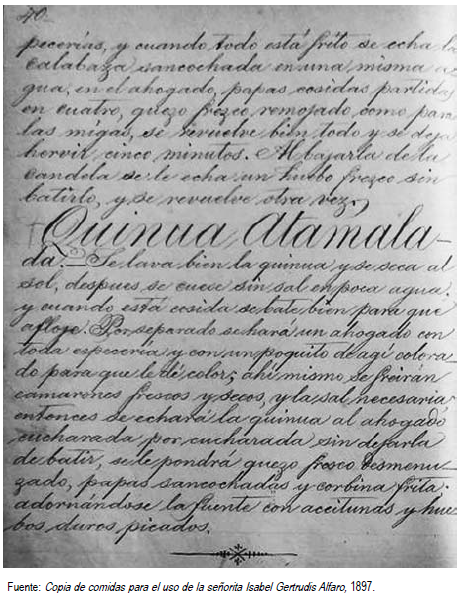 40.
pecerías, y cuando todo está frito se echa la
calabaza sancochada en una misma a-
gua, en el ahogado, papas cosidas partidas
en cuatro, quezo frezco remojado como para
las migas, se revuelve bien todo y se deja
hervir cinco minutos. Al bajarla de la
candela se le echa un huebo frezco sin
batirlo, y se revuelve otra vez.
Quinua Atamala-
da. Se lava bien la quinua y se seca al
sol, despues se cuese sin sal en poca agua.
y cuando está cosida se bate bien para que
afloje. Por separado se hará un ahogado con
toda especería y con un poquito de agi colora-
do para que le dé color; ahi mismo se freirán
camarones frescos y secos, y la sal necesaria
entonces se echará la quinua al ahogado
cucharada por cucharada sin dejarla
de batir, se le pondrá quezo frosco desmenu-
zado, papas sancochadas y corbina frita
adornándose la fuente con aceitunas y hue-
bos duros picados.
Fuente: Copia de comidas para el uso de la señorita Isabel Gertrudis Alfaro, 1897.